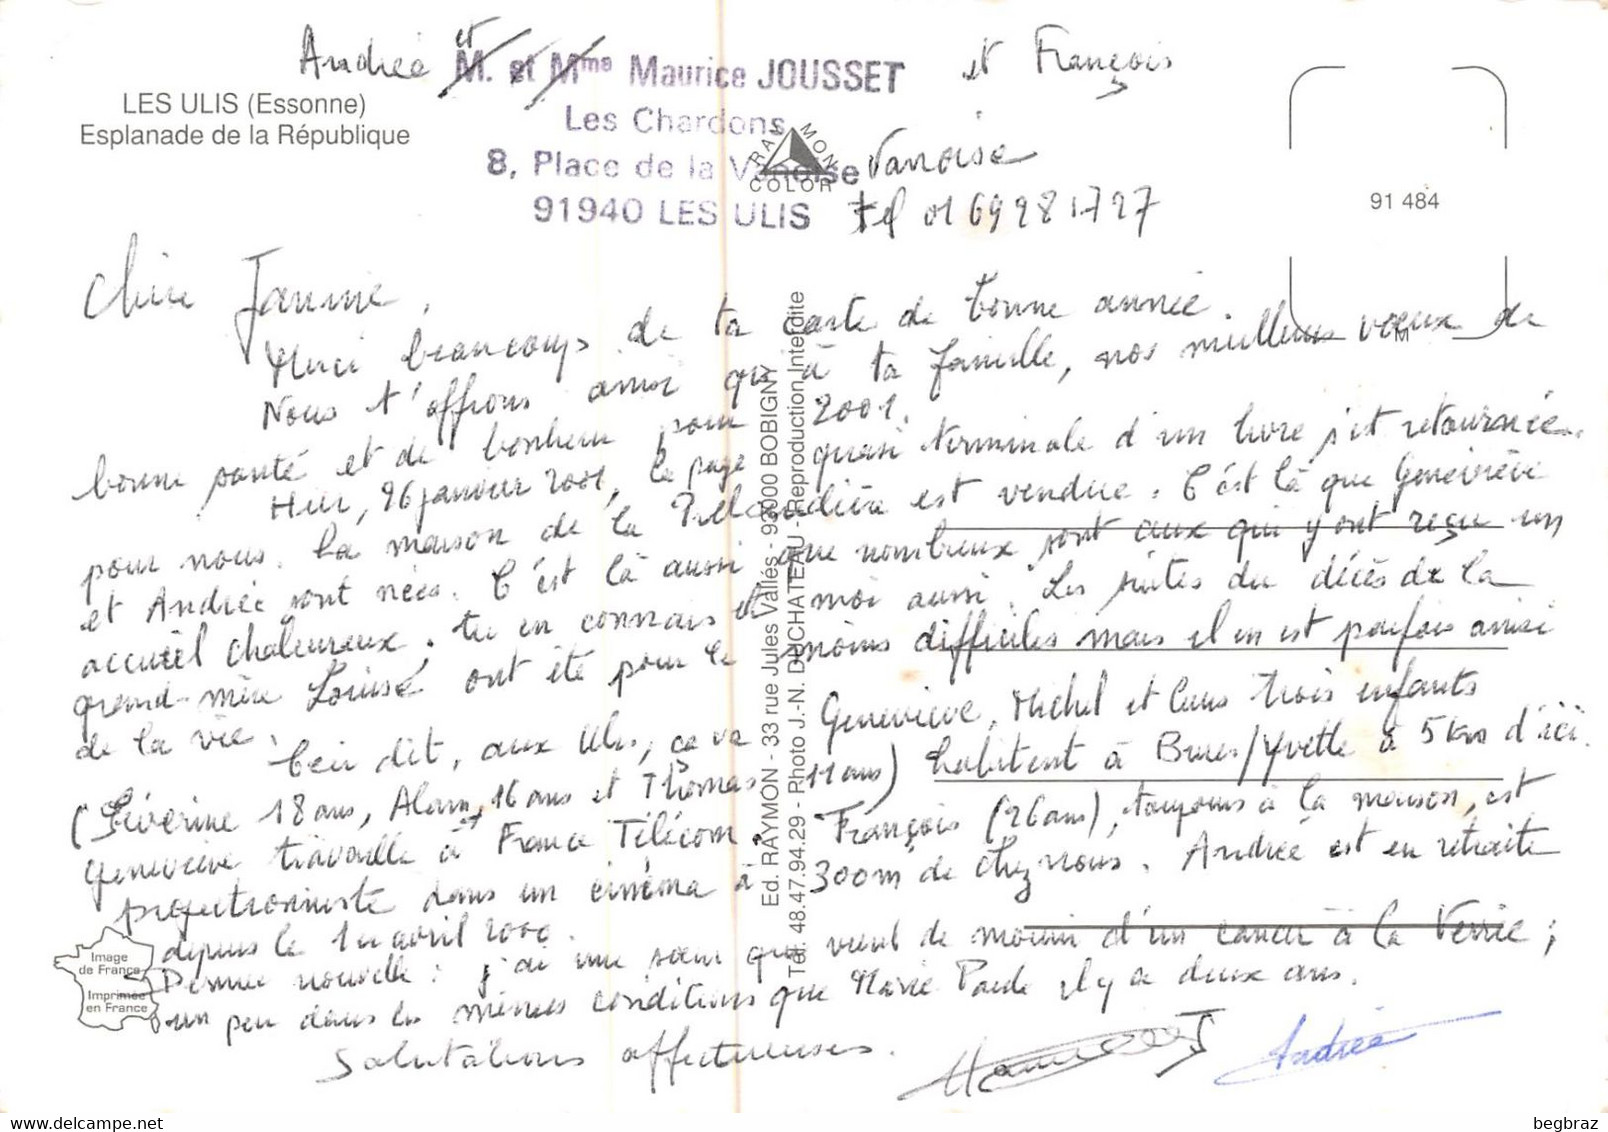 Andrée et M. et Mme Maurice JOUSSET et François
LES ULIS (Essonne)
Esplanade de la République
Les Chardons
8, Place de la Vanoise Vanoise
91940 LES ULIS Tel 01 69 28 17 27
RAYMON COLOR
91 484
Chère Jannine,
Merci beaucoup de ta carte de bonne année.
Nous t'offrons ainsi qu'à ta famille, nos meilleurs voeux de
bonne santé et de bonheur pour 2001.
Hier, 26 janvier 2001, la page quasi terminale d'un livre s'est retournée
pour nous. La maison de la est vendue. C'est là que Geneviève
et Andrée sont nées. C'est là aussi que nombreux sont ceux qui y ont reçu un
accueil chaleureux ; tu en connais et moi aussi. Les suites du décès de la
grand-mère Louise ont été pour le moins difficiles mais il en est parfois ainsi
de la vie.
Ceci dit, aux Ulis, ça va. Geneviève, Michel et leurs trois enfants
(Séverine 18 ans, Alain, 16 ans et Thomas 11 ans) habitent à Bures/Yvette à 5 km d'ici.
Geneviève travaille à France Télécom. François (26 ans), toujours à la maison, est
projectionniste dans un cinéma à 300m de chez nous. Andrée est en retraite
depuis le 1er avril 2000.
Dernière nouvelle : j'ai une soeur qui vient de mourir d'un cancer à la Verrie ;
un peu dans les mêmes conditions que Marie Paule il y a deux ans.
Salutations affectueuses.
Maurice J Andrée
Ed. RAYMON - 33 rue Jules Vallés - 93000 BOBIGNY
Tél. 48.47.94.29 - Photo J.-N. DUCHATEAU - Reproduction Interdite
Image
de France
Imprimée
en France
M
begbraz